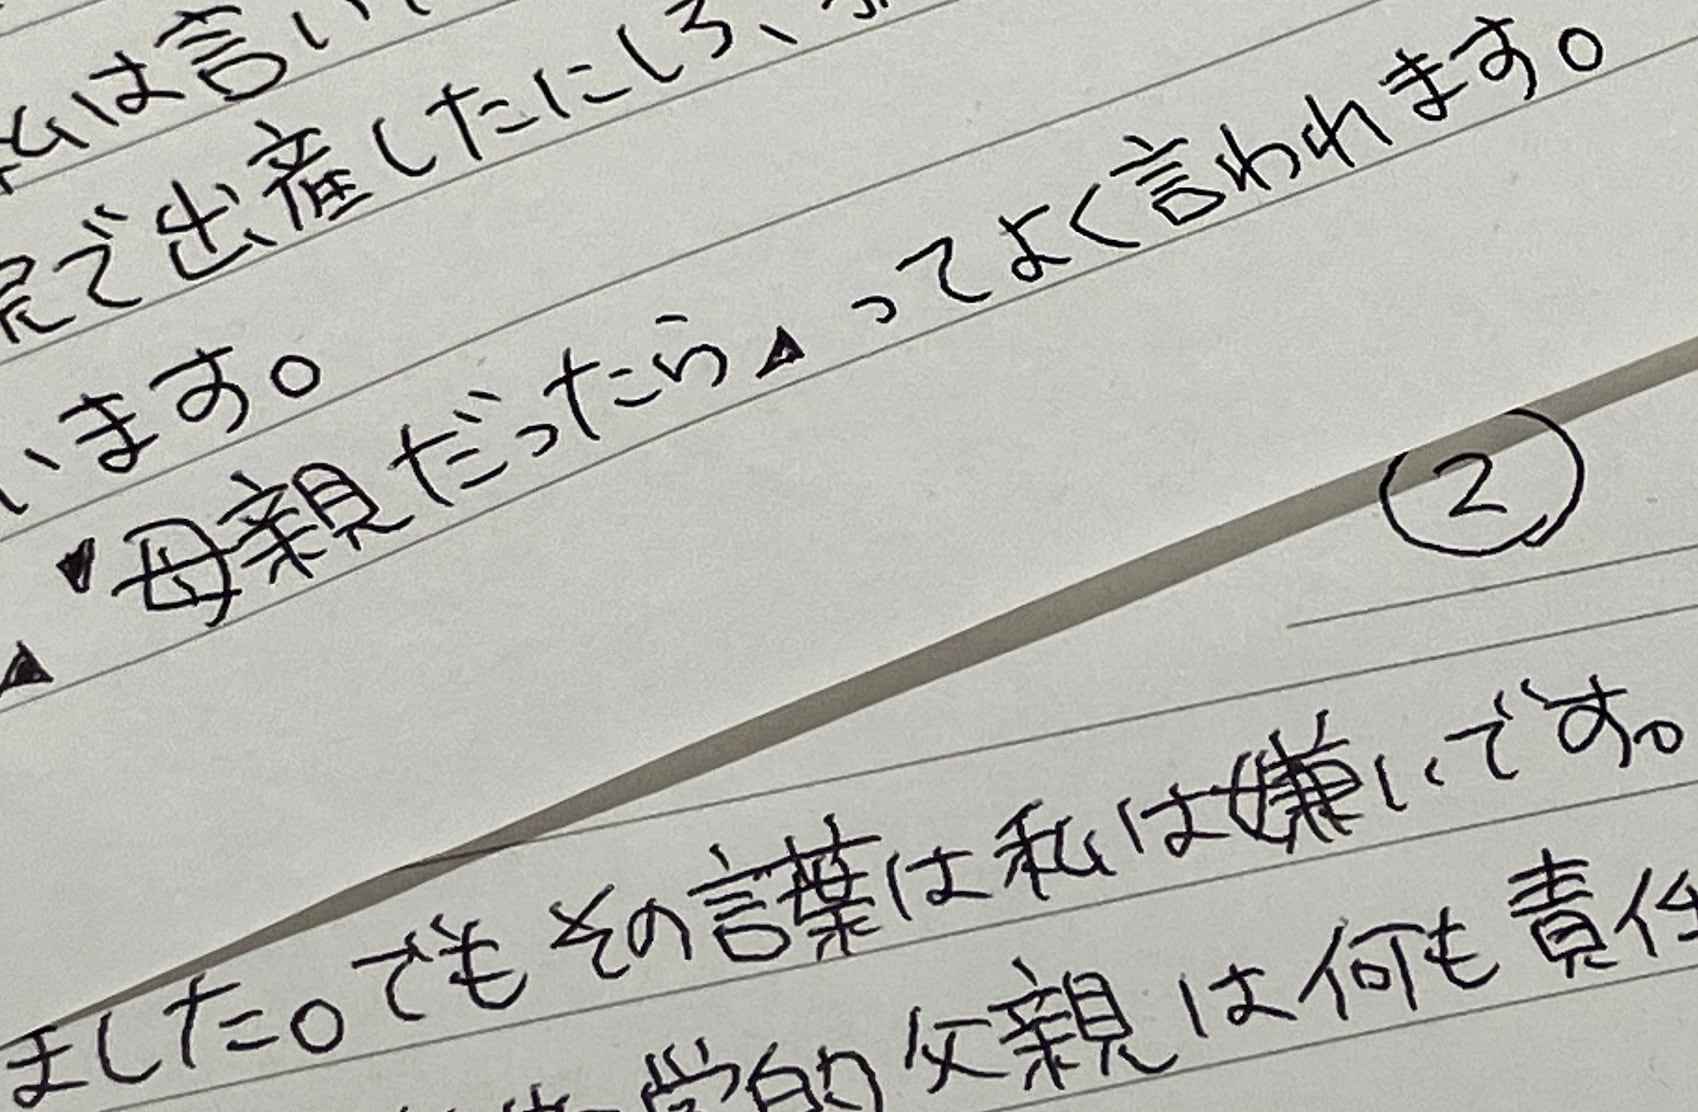 私は言い
で出産したにしろ、
います。
"母親だったら"ってよく言われます。
②
ました。でもその言葉は私は嫌いです。
学的父親は何も責任